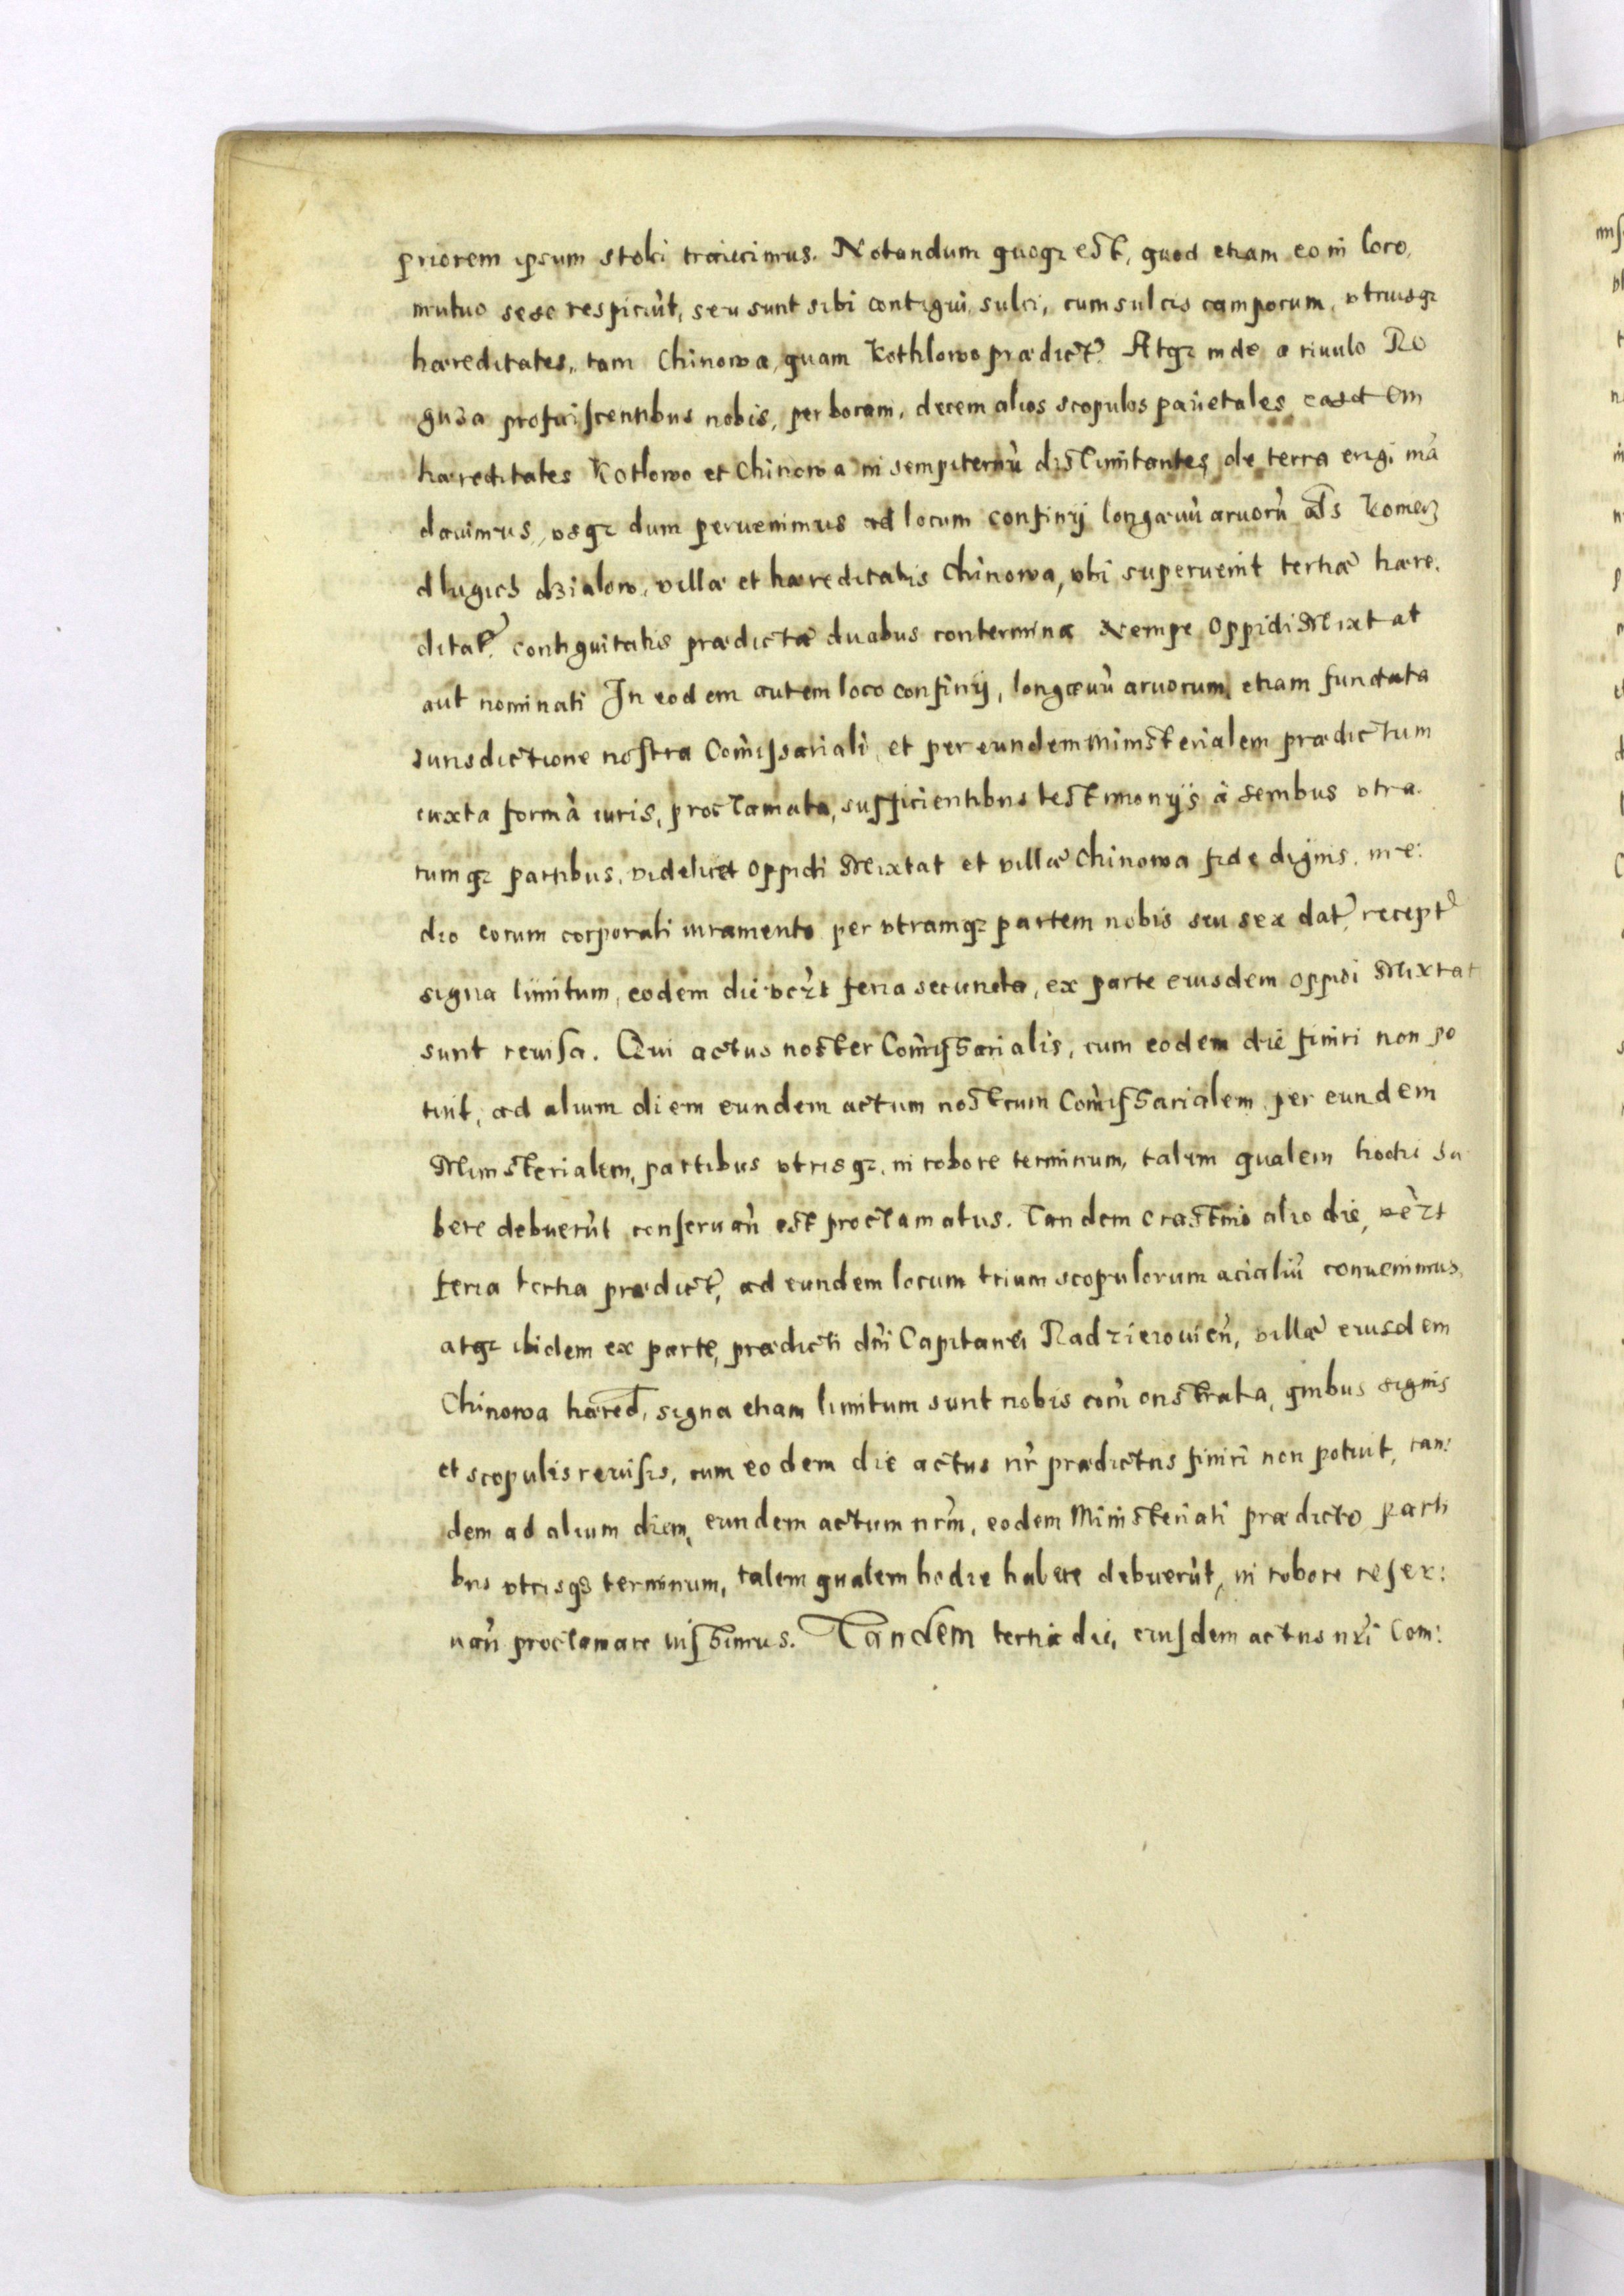 priorem ipsum stoki traiecimus. Notandum quoqz est, quod etiam eo in loco,
mutuo sese respiciu͂t, seu sunt sibi contigui sulci, cum sulcis camporum, vtriusqz
hæreditates, tam Chinowa, quam Kothlowo prædict. Atqz inde a riuulo Ro
guza proficiscentibus nobis, per boram, decem alios scopulos parietales easdem
hæreditates Kotlowo et Chinowa in sempiternu͂ dislimitantes de terra erigi ma͂
dauimus, vsqz dum peruenimus ad locum confinij longæuu͂ aruoru͂ als Komerz
dlugich dzialow, villæ et hæreditatis Chinowa, vbi superuenit tertiæ hære.
ditat. contiguitatis prædictæ duabus contermina Nempe Oppidi Mixtat
aut nominati In eodem autem loco confinij, longæuu͂ aruorum, etiam fundata
Iurisdictione nostra Com͂issariali, et per eundem ministerialem prædictum
iuxta forma͂ iuris, proclamata, sufficientibus testimonijs à senibus vtra
rumqz partibus, videlicet Oppidi Mixtat et villæ Chinowa fide dignis, me:
dio eorum corporali iuramento per vtramqz partem nobis seu se dat, recept
signa limitum, eodem die vczt feria secunda, ex parte eiusdem oppidi Mixtat
sunt reuisa. Qui actus noster Com͂issarialis, cum eodem die finiri non po
tuit, ad alium diem eundem actum nostrum Com͂issarialem per eundem
Ministerialem, partibus vtrisqz, in robore terminum, talem qualem hodie ha
bere debueru͂t conseruan͂ est proclamatus. Tandem crastino alio die, vczt
feria tertia prædict, ad eundem locum trium scopulorum acialiu͂ conuenimus,
atqz ibidem ex parte, prædicti dn͂i Capitanei Radzieiouien͂, villæ eiusdem
Chinowa hæred, signa etiam limitum sunt nobis com͂onstrata, quibus signis
et scopulis reuisis, cum eodem die actus nr͂ prædictus finiri non potuit, tan:
dem ad alium diem, eundem actum nrm͂, eodem Ministeriali prædicto parti
bus vtrisqz terminum, talem qualem hodie habere debueru͂t, in robore reser:
uan͂ proclamare iussimus. Tandem tertia die, eiusdem actus nr͂i Com: